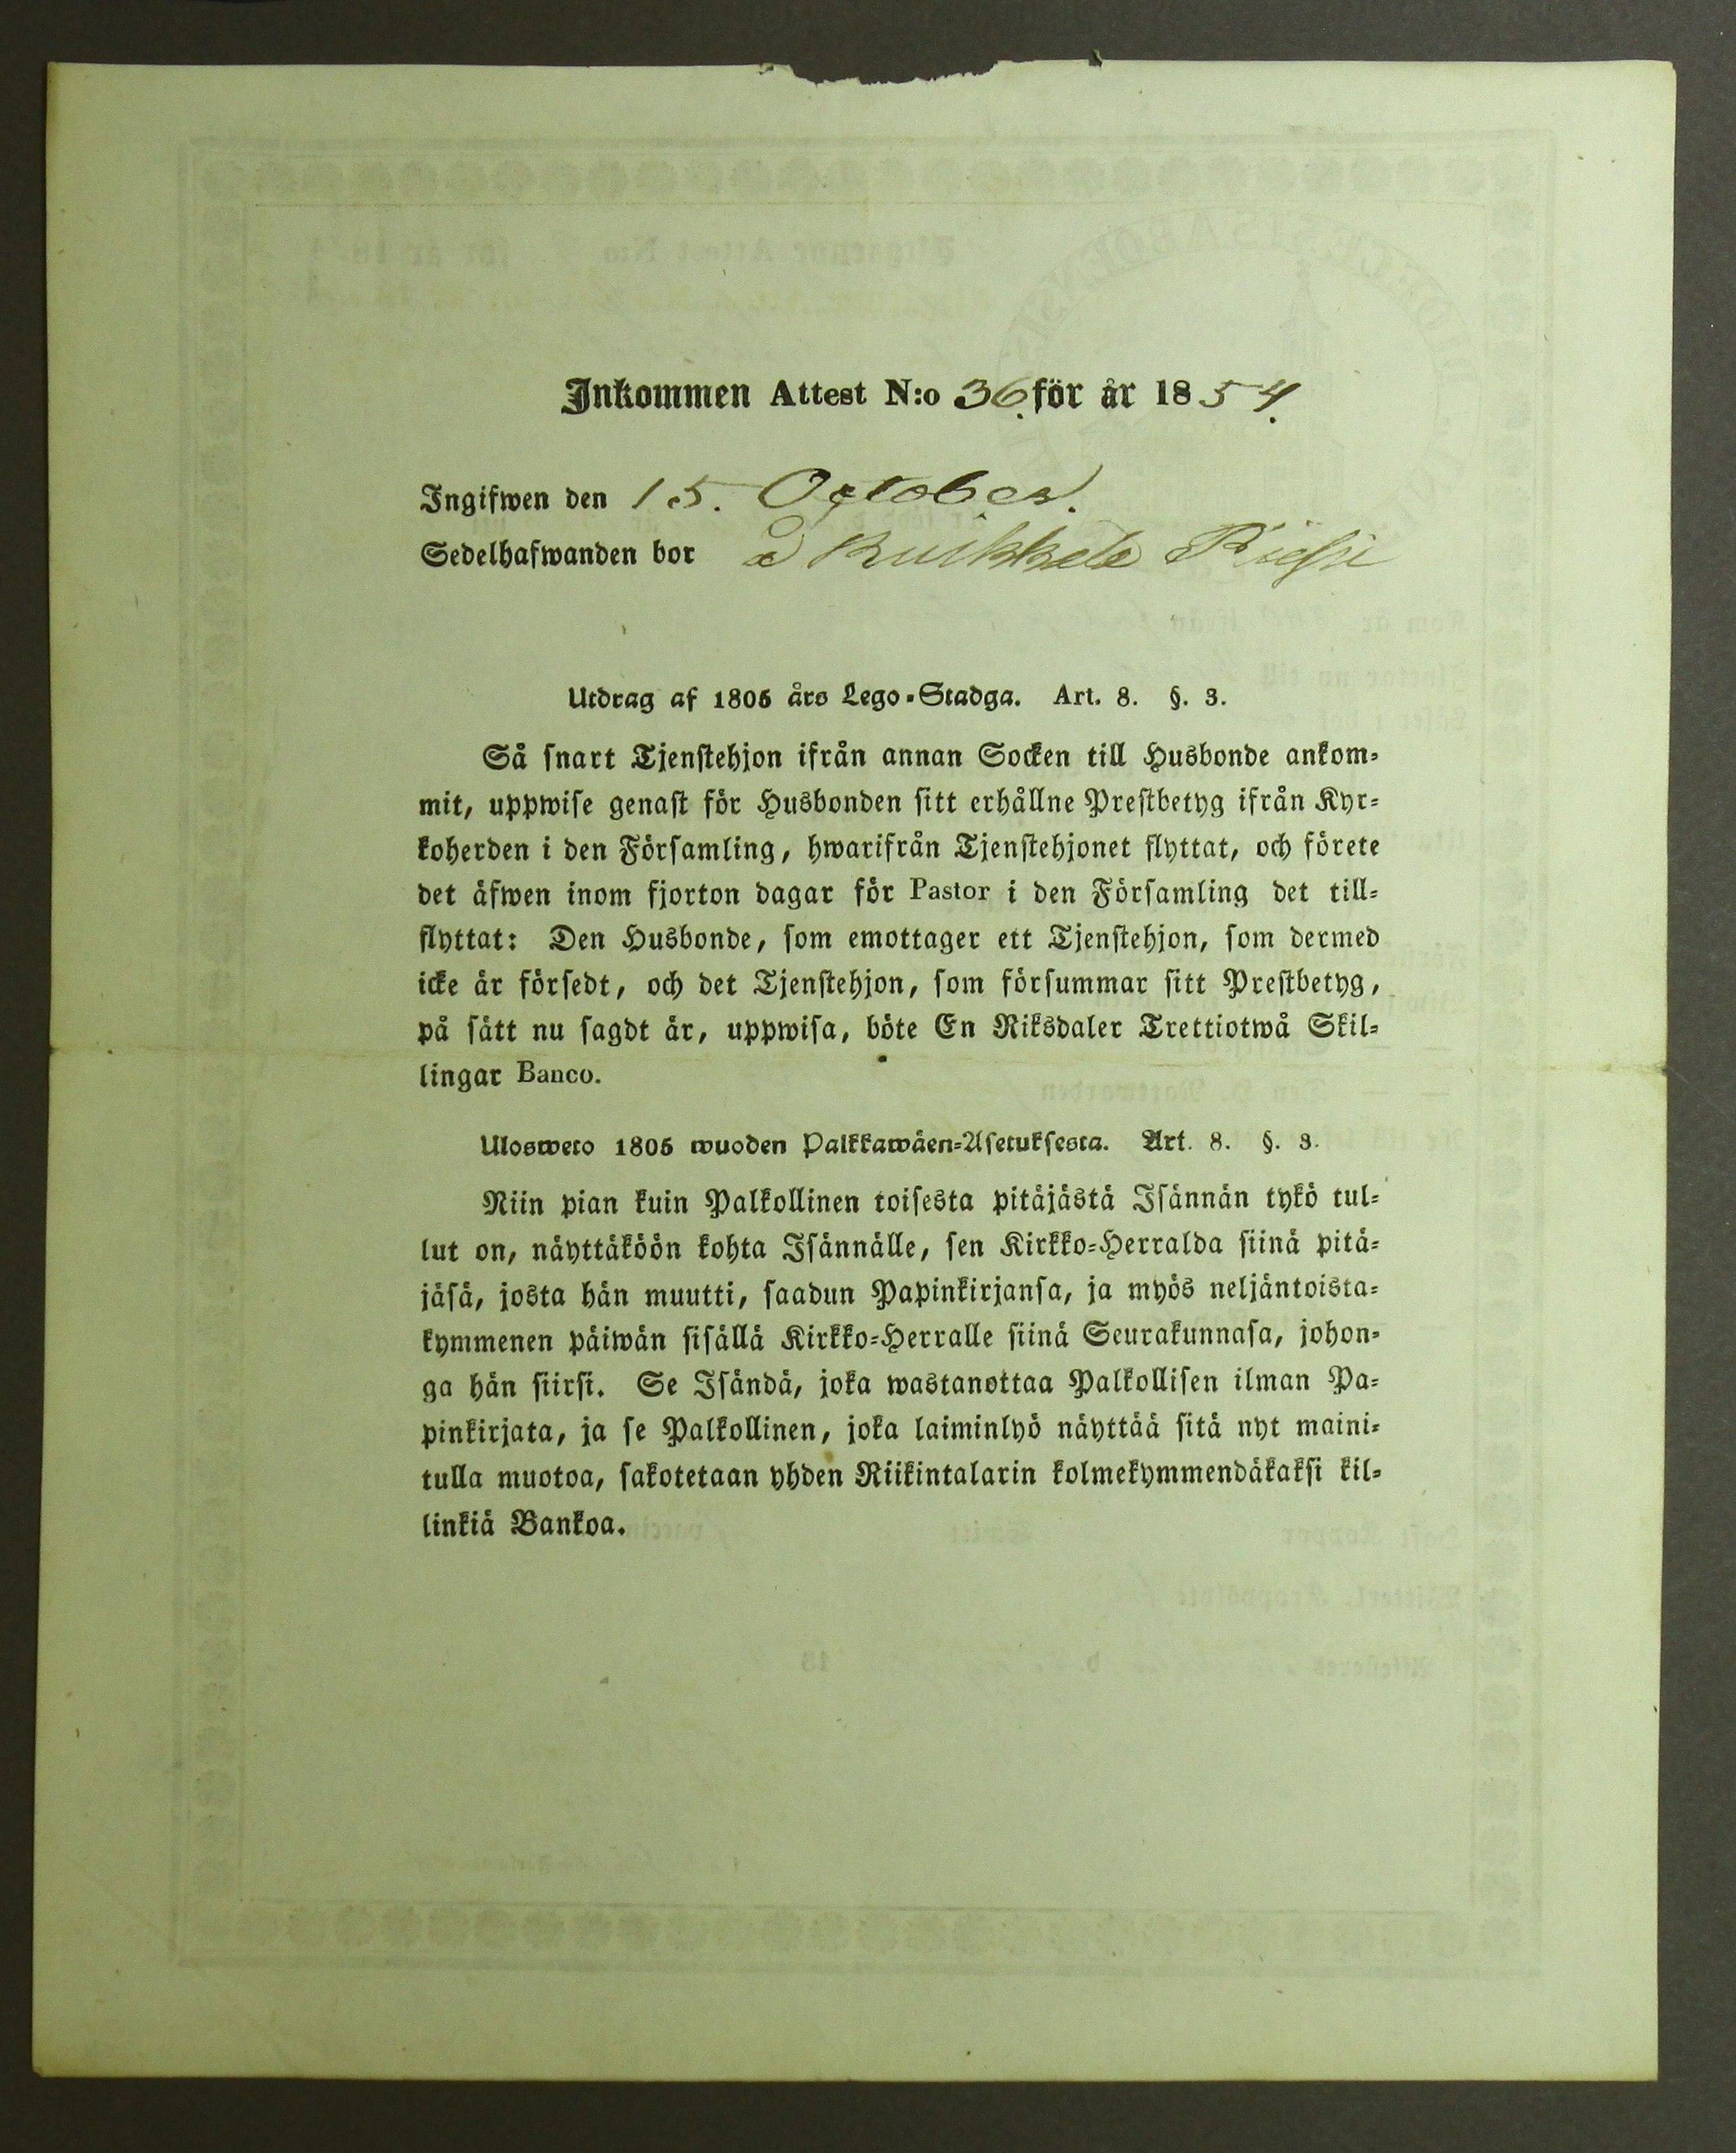 Inkommen Attest N:o 36. för år 1854.
Ingifwen den 15. October.
Sedelhafwanden bor å
Utdrag af 1805 års Lego-Stadga. Art. 8. §. 3.
Så snart Tjenstehjon ifrån annan Socken till Husbonde ankom-
mit, uppwise genast för Husbonden sitt erhållne Prestbetyg ifrån Kyr-
koherden i den Församling, hwarifrån Tjenstehjonet flyttat, och förete
det äfwen inom fjorton dagar för Pastor i den Församling det till-
flyttat: Den Husbonde, som emottager ett Tjenstehjon, som dermed
icke är försedt, och det Tjenstehjon, som försummar sitt Prestbetyg,
på sätt nu sagdt är, uppwisa, böte En Riksdaler Trettiotwå Skil-
lingar Banco.
Ulosweto 1805 wuoden Palkkawäen-Asetuksesta. Art. 8. §. 3.
Niin pian kuin Palkollinen toisesta pitäjästä Isännän tykö tul-
lut on, näyttäköön kohta Isännälle, sen Kirkko-Herralda siinä pitä-
jäsä, josta hän muutti, saadun Papinkirjansa, ja myös neljäntoista-
kymmenen päiwän sisällä Kirkko-Herralle siinä Seurakunnasa, johon-
ga hän siirsi. Se Isändä, joka wastanottaa Palkollisen ilman Pa-
pinkirjata, ja se Palkollinen, joka laiminlyö näyttää sitä nyt maini-
tulla muotoa, sakotetaan yhden Riikintalarin kolmekymmendäkaksi kil-
linkiä Bankoa.